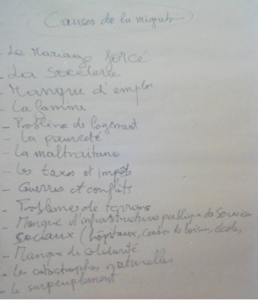 Causes de la migration
- Le Mariage forcé
- La Sorcelerie
- Manque d'emploi
- La famine
- Problème de logement
- la pauvreté
- La maltraitance
- Les taxes et impôts
- Guerres et conflits
- Problemes de terrains
- Manque d'infrastructures publique de Services
sociaux (hôpitaux, centres de loisirs, écoles
- Manque de solidarité
- les catastrophes naturelles
- le surpeuplement